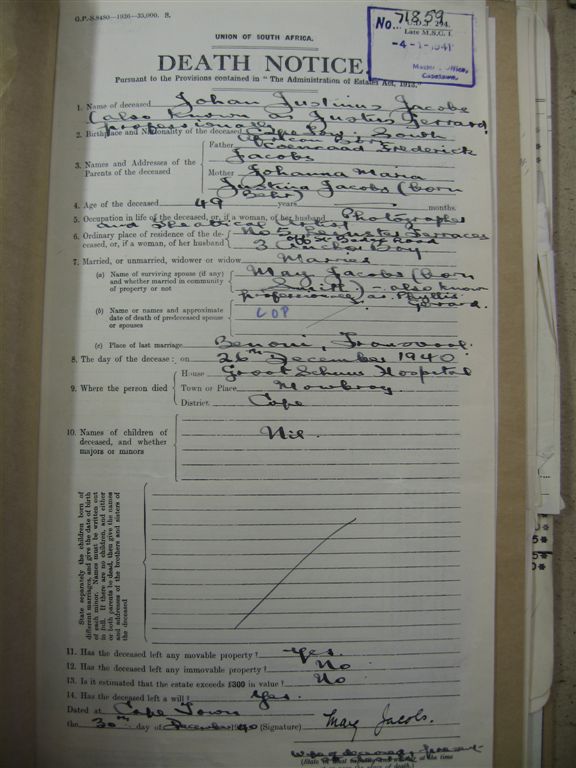 G.P.-S.8480—1936—35,000. S.
No. 71859
U.D.J. 294.
Late M.S.C. 1.
-4-1-1941
Master's Office,
Capetown.
UNION OF SOUTH AFRICA.
DEATH NOTICE.
Pursuant to the Provisions contained in "The Administration of Estates Act, 1913."
1. Name of deceased Johan Justinus Jacobs
(also known as Justus Gerrard
professionally)
2. Birthplace and Nationality of the deceased Cape Prov: South
African Born
3. Names and Addresses of the Parents of the deceased
Father Coenraad Frederick
Jacobs
Mother Johanna Maria
Justina Jacobs (born
Behr)
4. Age of the deceased 49 years months.
5. Occupation in life of the deceased, or, if a woman, of her husband Photographer
and Theatrical Artist
6. Ordinary place of residence of the deceased, or, if a woman, of her husband No 5 Terraces
off St Bedes Road
3 Anchor Bay
7. Married, or unmarried, widower or widow Married
(a) Name of surviving spouse (if any) and whether married in community of property or not
May Jacobs (born
Smith) - also known
professionally as Phyllis
Gerrard.
(b) Names and approximate date of death of predeceased spouse or spouses
COP
(c) Place of last marriage Benoni, Transvaal.
8. The day of the decease: on 26th December 1940
9. Where the person died
House Groot Schuur Hospital
Town or Place Mowbray
District Cape
10. Names of children of deceased, and whether majors or minors
Nil.
State separately the children born of different marriages, and give the date of birth of each minor. Names must be written out in full. If there are no children, and either or both parents be dead, then give the names and addresses of the brothers and sisters of the deceased
11. Has the deceased left any movable property? Yes.
12. Has the deceased left any immovable property? No
13. Is it estimated that the estate exceeds £300 in value? No
14. Has the deceased left a will? Yes.
Dated at Cape Town
the 30th day of December 1940 (Signature) May Jacobs.
wife of deceased, present